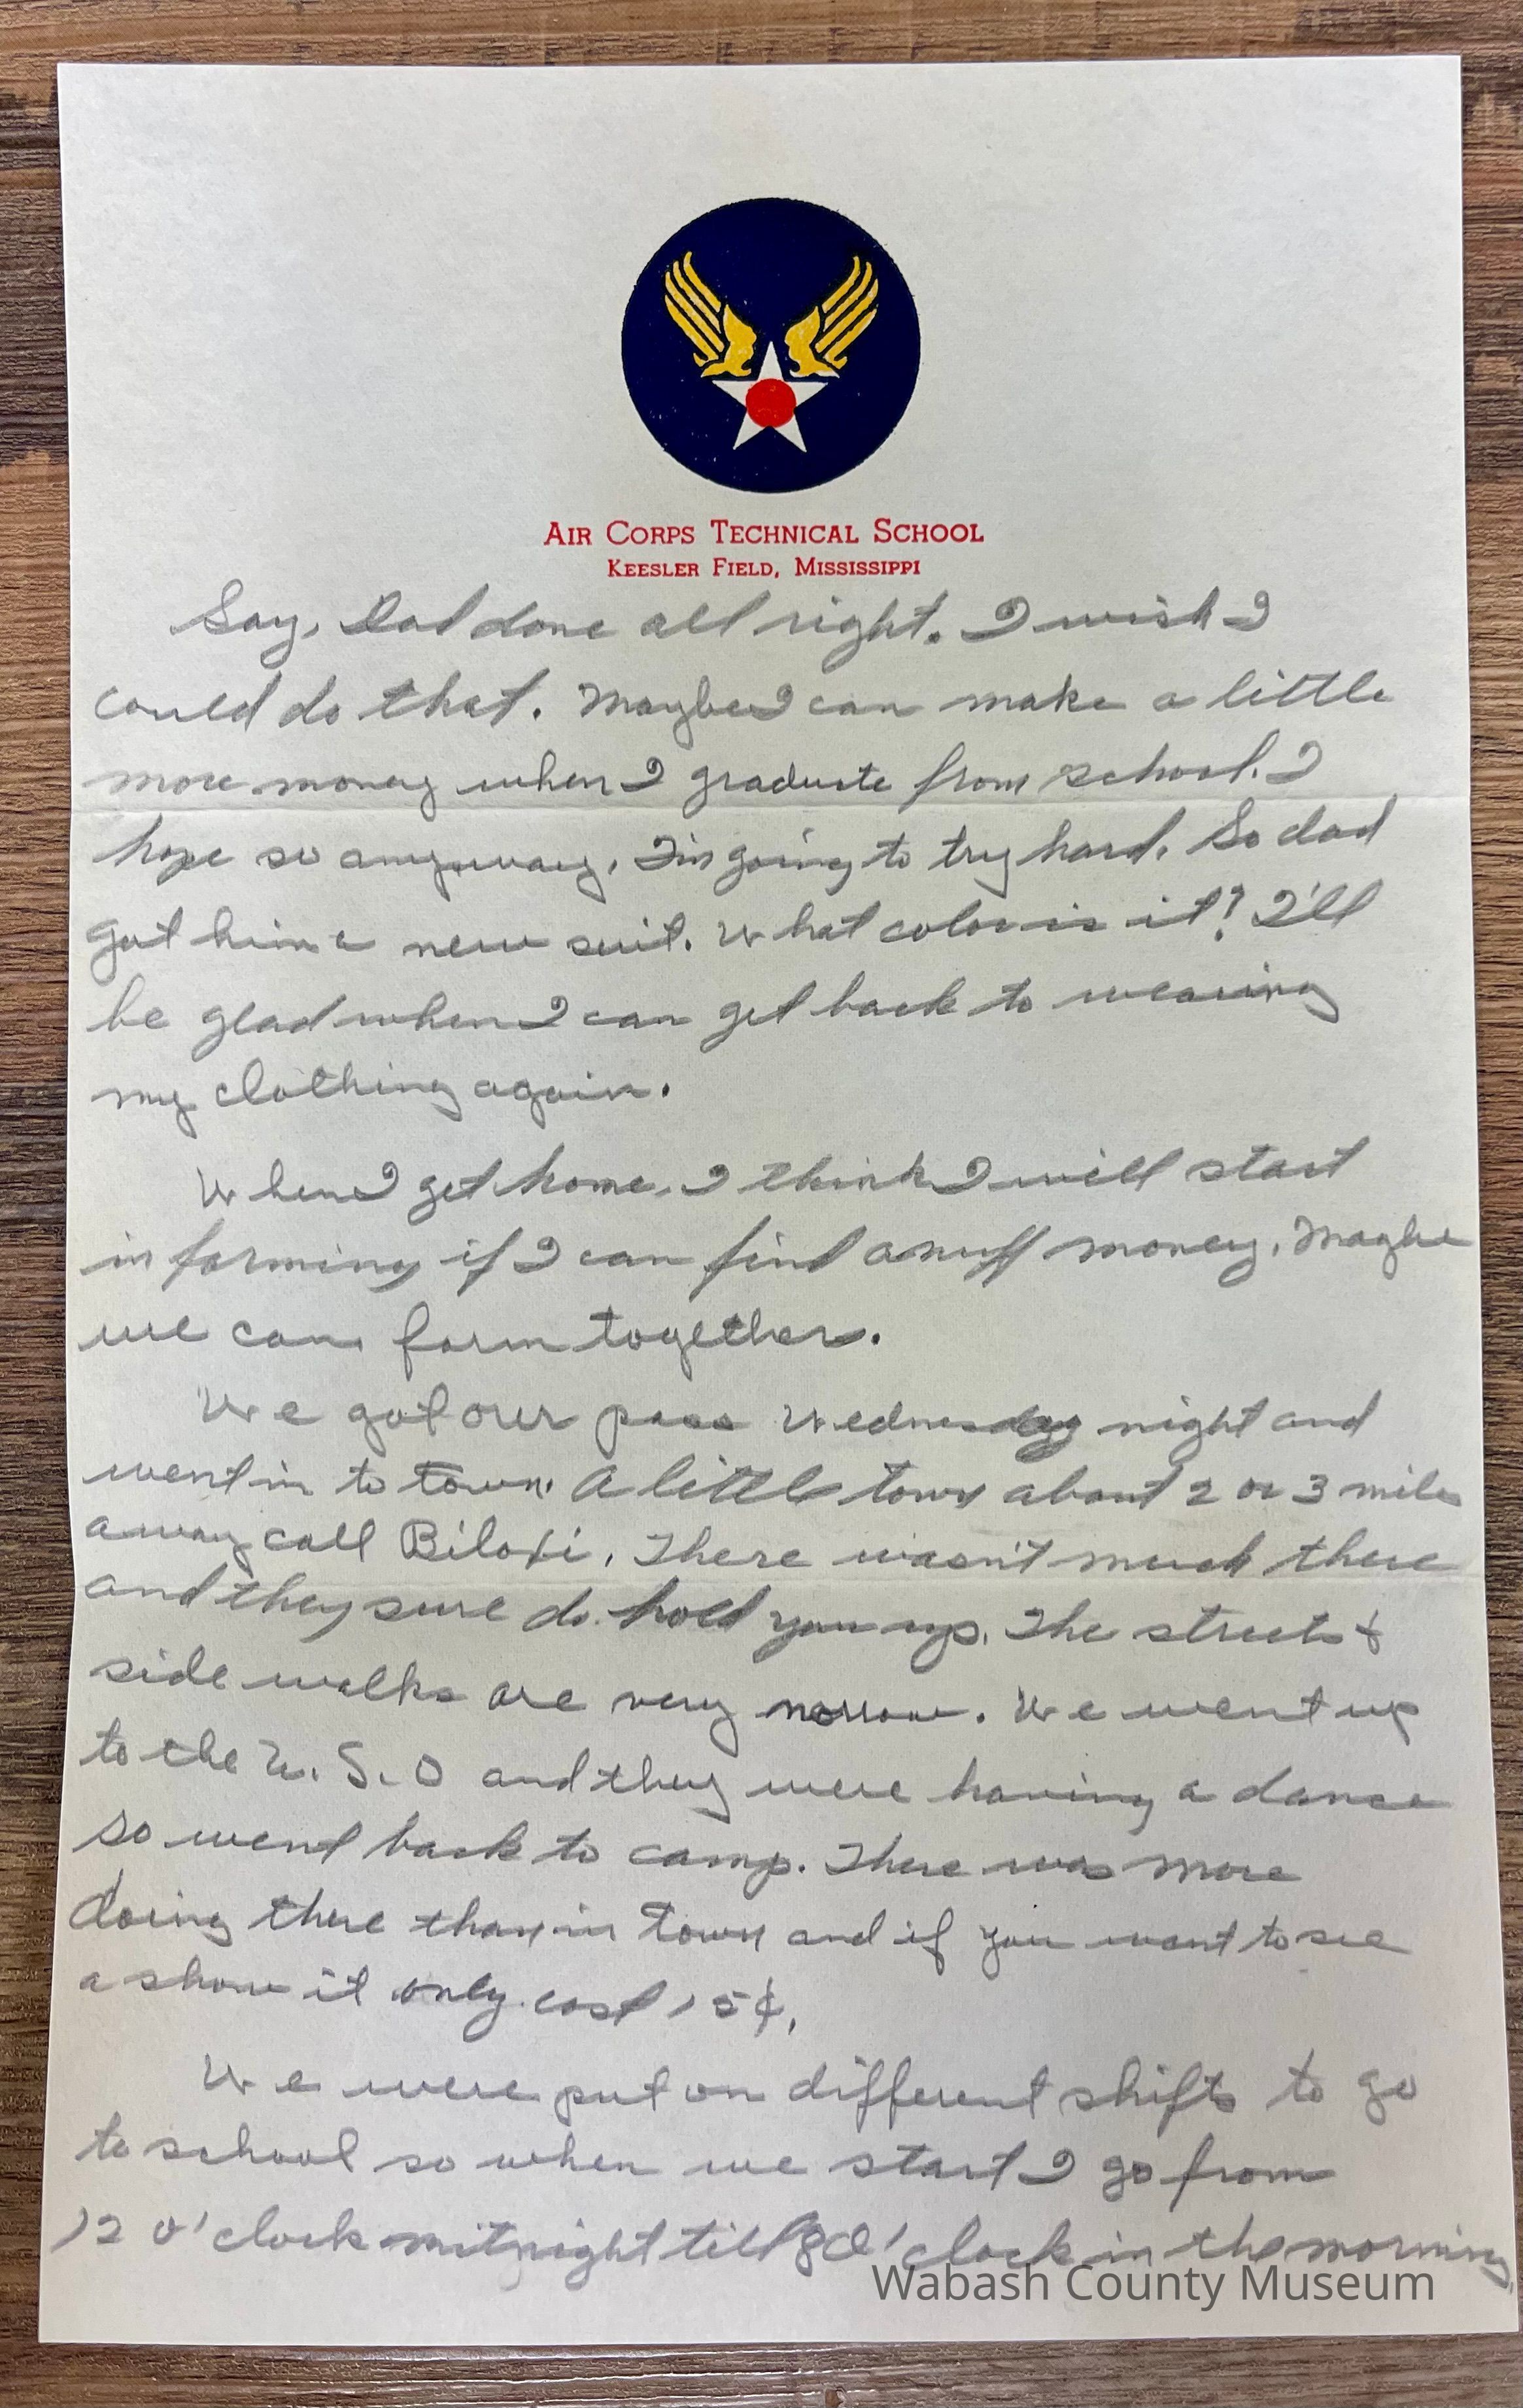 AIR CORPS TECHNICAL SCHOOL
KEESLER FIELD, MISSISSIPPI
Say, Dad done all right. I wish I
could do that. Maybe I can make a little
more money when I graduate from school. I
hope so anyway, I'm going to try hard. So dad
got him a new suit. What color is it? I'll
be glad when I can get back to wearing
my clothing again.
When I get home, I think I will start
in farming if I can find anuff money. Maybe
we can farm together.
We got our pass Wednesday night and
went in to town. A little town about 2 or 3 miles
away call Biloxi. There wasn't much there
and they sure do hold you up. The streets &
side walks are very narrow. We went up
to the U. S. O and they were having a dance
so went back to camp. There was more
doing there than in town and if you want to see
a show it only cost 15¢.
We were put on different shifts to go
to school so when we start I go from
12 o'clock mitnight till 8 O'clock in the morning.
Wabash County Museum